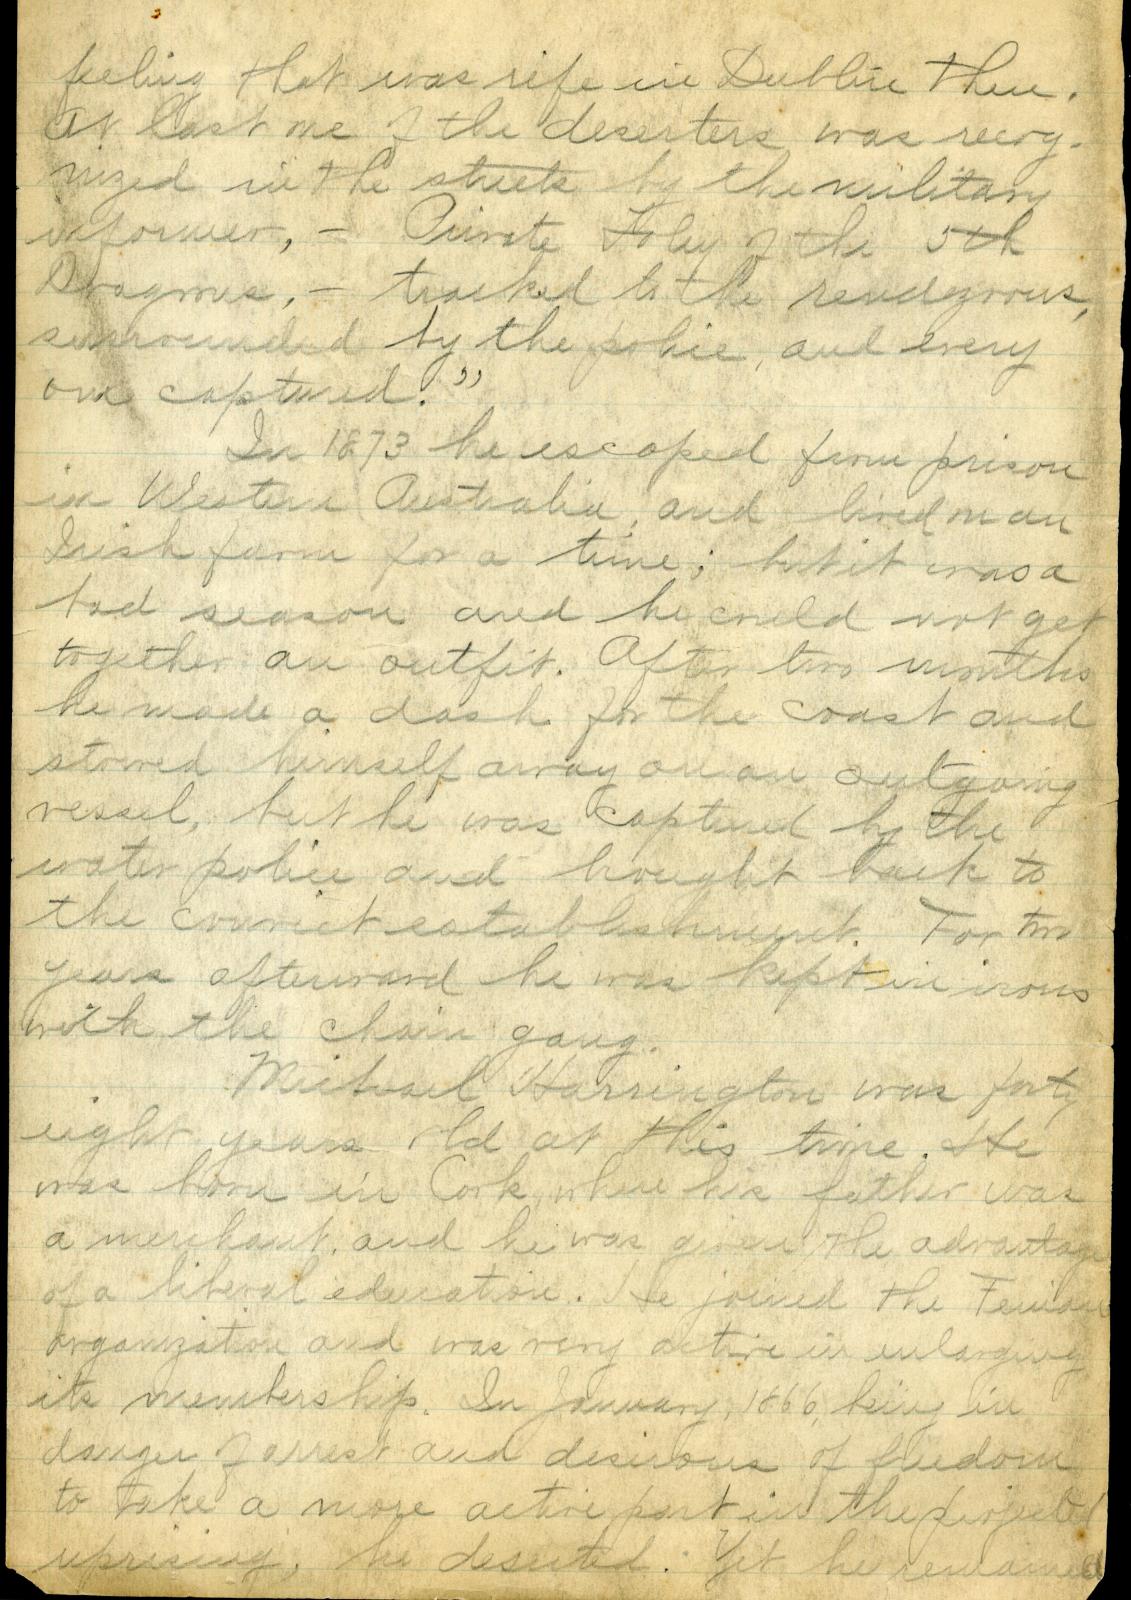 feeling that was rife in Dublin then.
At last one of the deserters was recog-
nized in the streets by the military
informer, - Private Foley of the 5th
Dragoons, - tracked to the rendezvous,
surrounded by the police, and every
one captured."
In 1873 he escaped from prison
in Western Australia, and lived on an
Irish farm for a time; but it was a
bad season and he could not get
together an outfit. After two months
he made a dash for the coast and
stowed himself away on an outgoing
vessel, but he was captured by the
water police and brought back to
the convict establishment. For two
years afterward he was kept in irons
with the chain gang.
Michael Harrington was forty
eight years old at this time. He
was born in Cork, where his father was
a merchant, and he was given the advantage
of a liberal education. He joined the Fenian
organization and was very active in enlarging
its membership. In January, 1866, being in
danger of arrest and desirous of freedom
to take a more active part in the projected
uprising, he deserted. Yet he remained